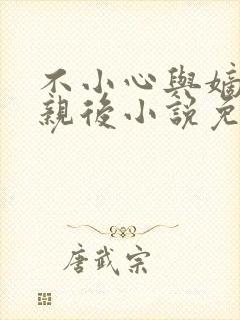 不小心與嫡
親後小說免
唐武宗